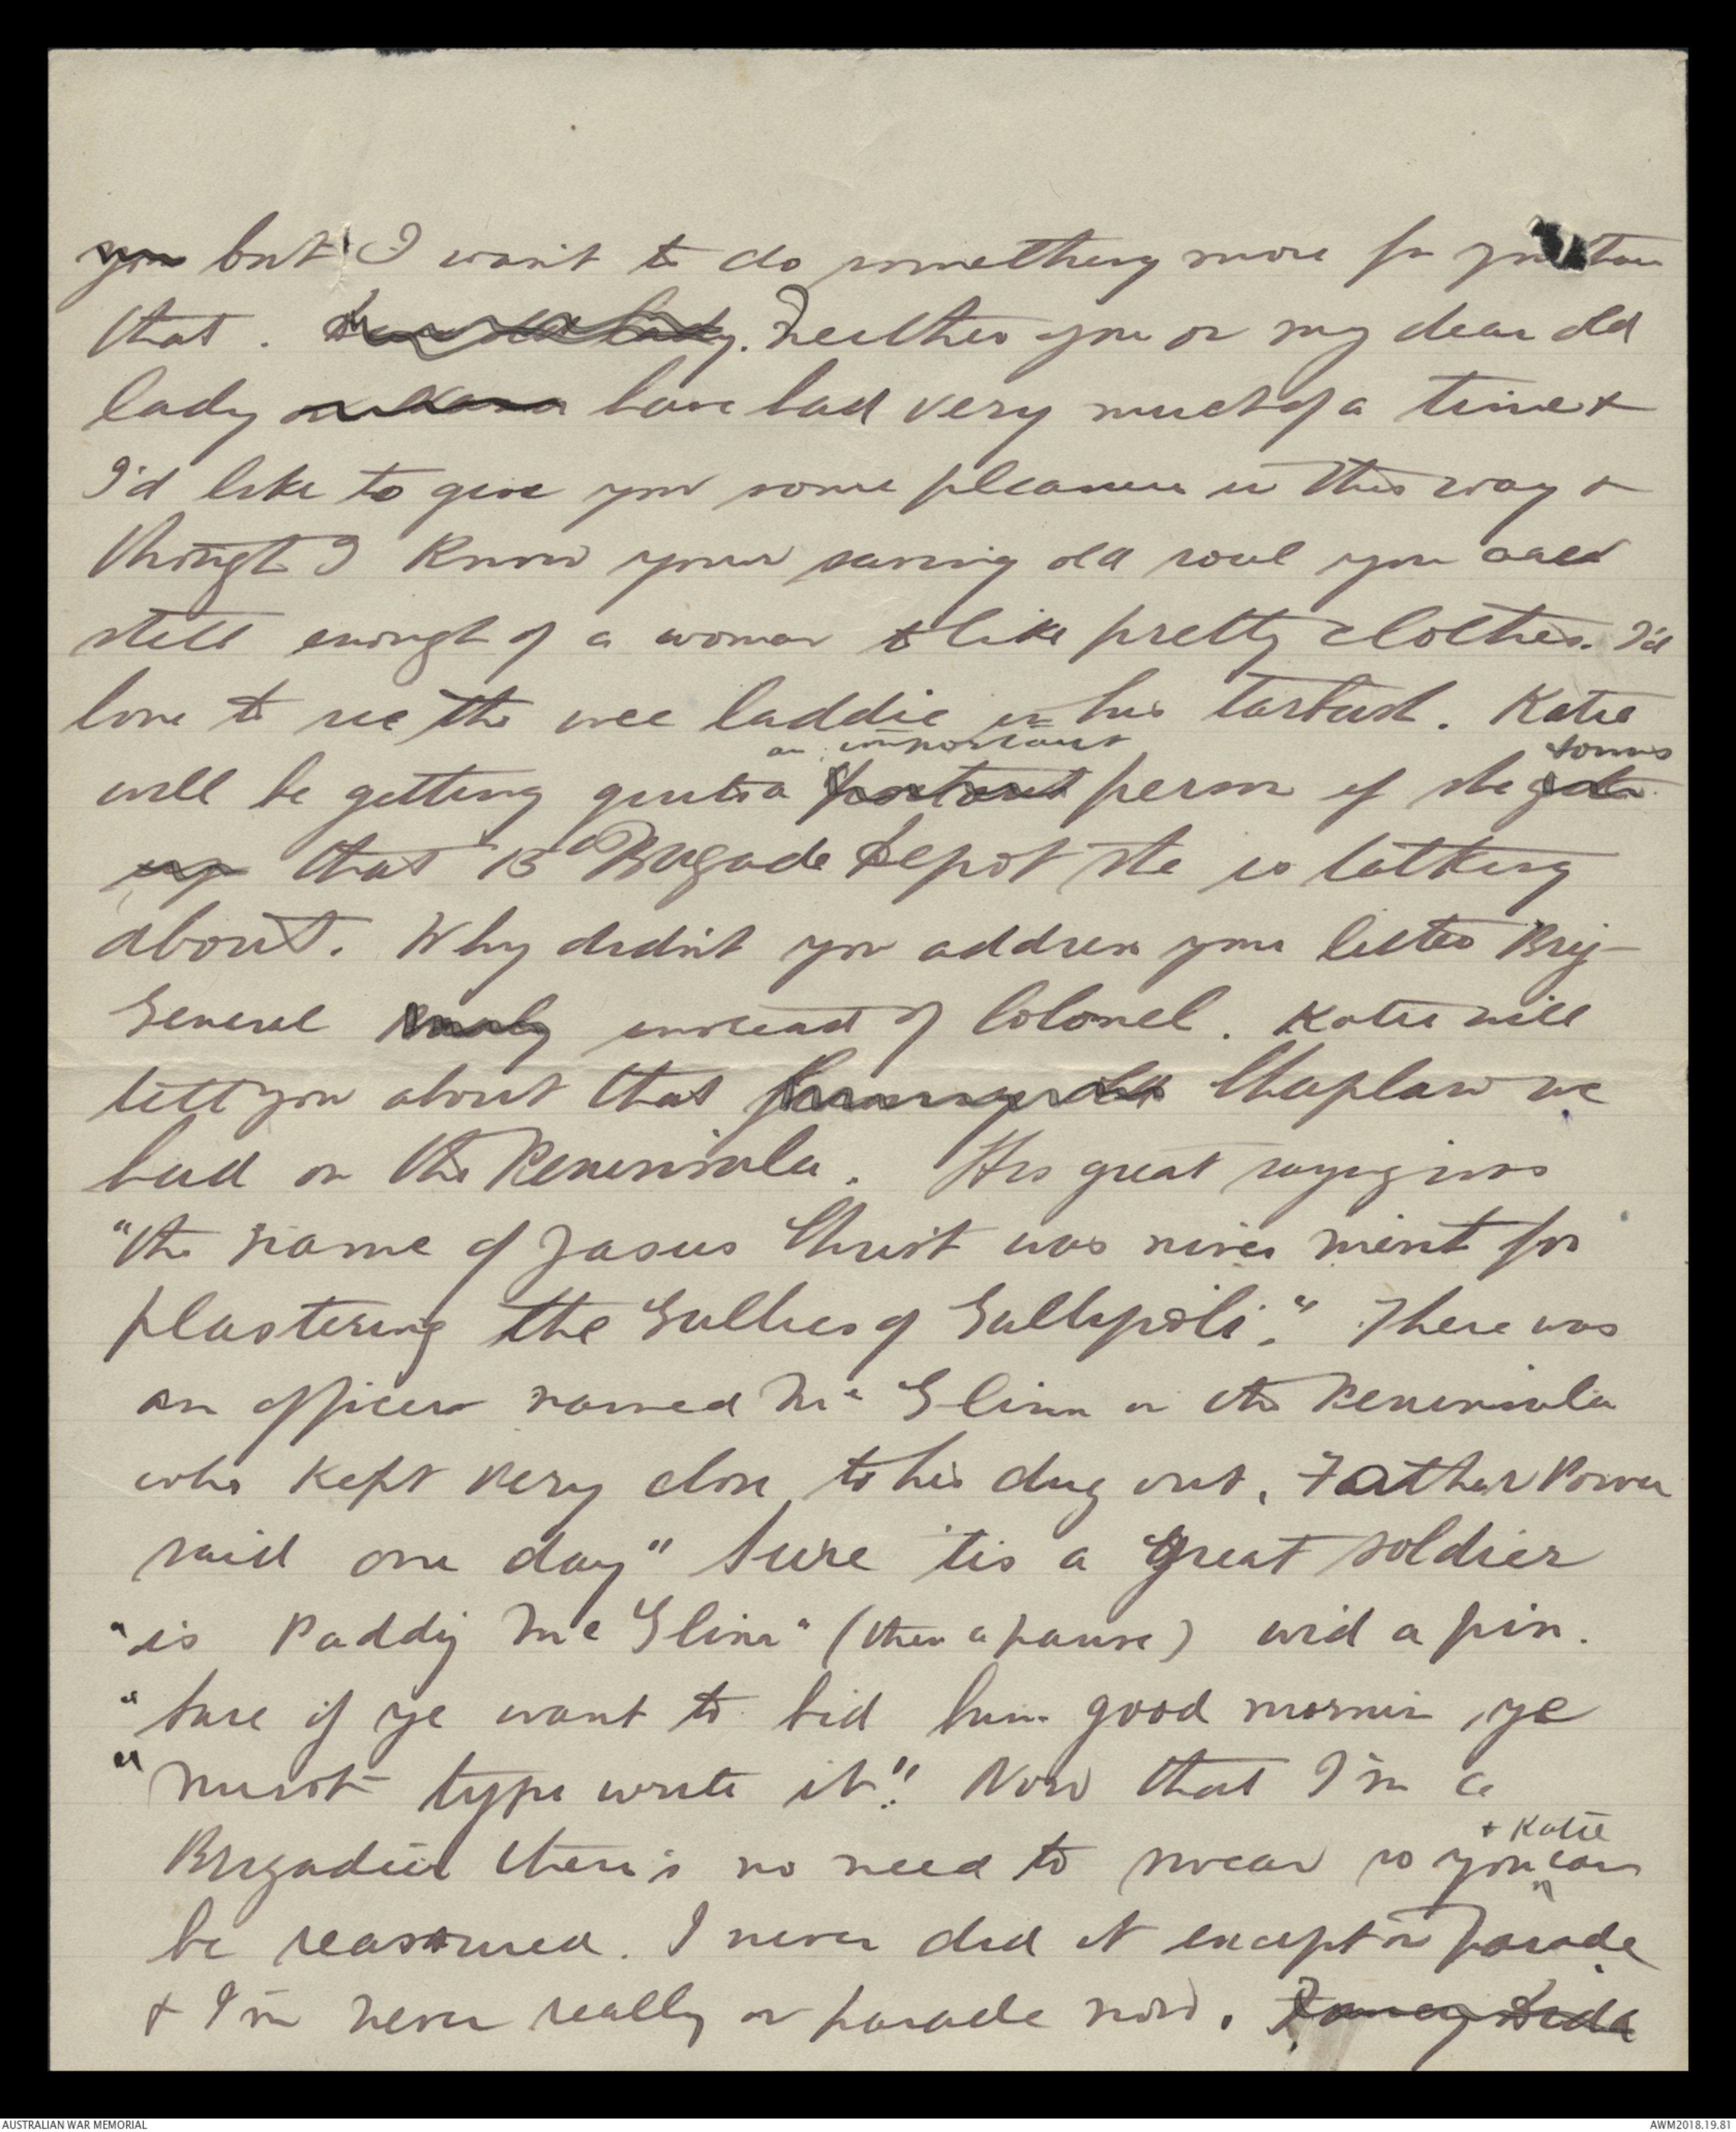 you but I want to do something more for you than
that. dear old lady. Neither you or my dear old
lady have had very much of a time &
I'd like to give you some pleasure in this way &
though I know your saving old soul you are
still enough of a woman to like pretty clothes. I'd
love to see the wee laddie in his tarbush. Katie
an important forms
will be getting quite a person if she gets
up that 15th Brigade Depot she is talking
about. Why didn't you address your letter Brig-
General instead of Colonel. Katie will
tell you about that Chaplain we
had on the Peninsula. His great saying was
"the name of Jasus Christ was niver mint for
plastering the Gullies of Gallipoli". There was
an officer named McGlinn on the Peninsula
who kept very close to his dug out. Father Power
said one day "Sure 'tis a great soldier
"is Paddy McGlinn" (then a pause) wid a pin.
"Sure if ye want to bid him good mornin, ye
"must type write it". Now that I'm a
+ Katie
Brigadier there's no need to swear so you can
be reassured. I never did it except on parade
& I'm never really on parade now. Fancy Dida